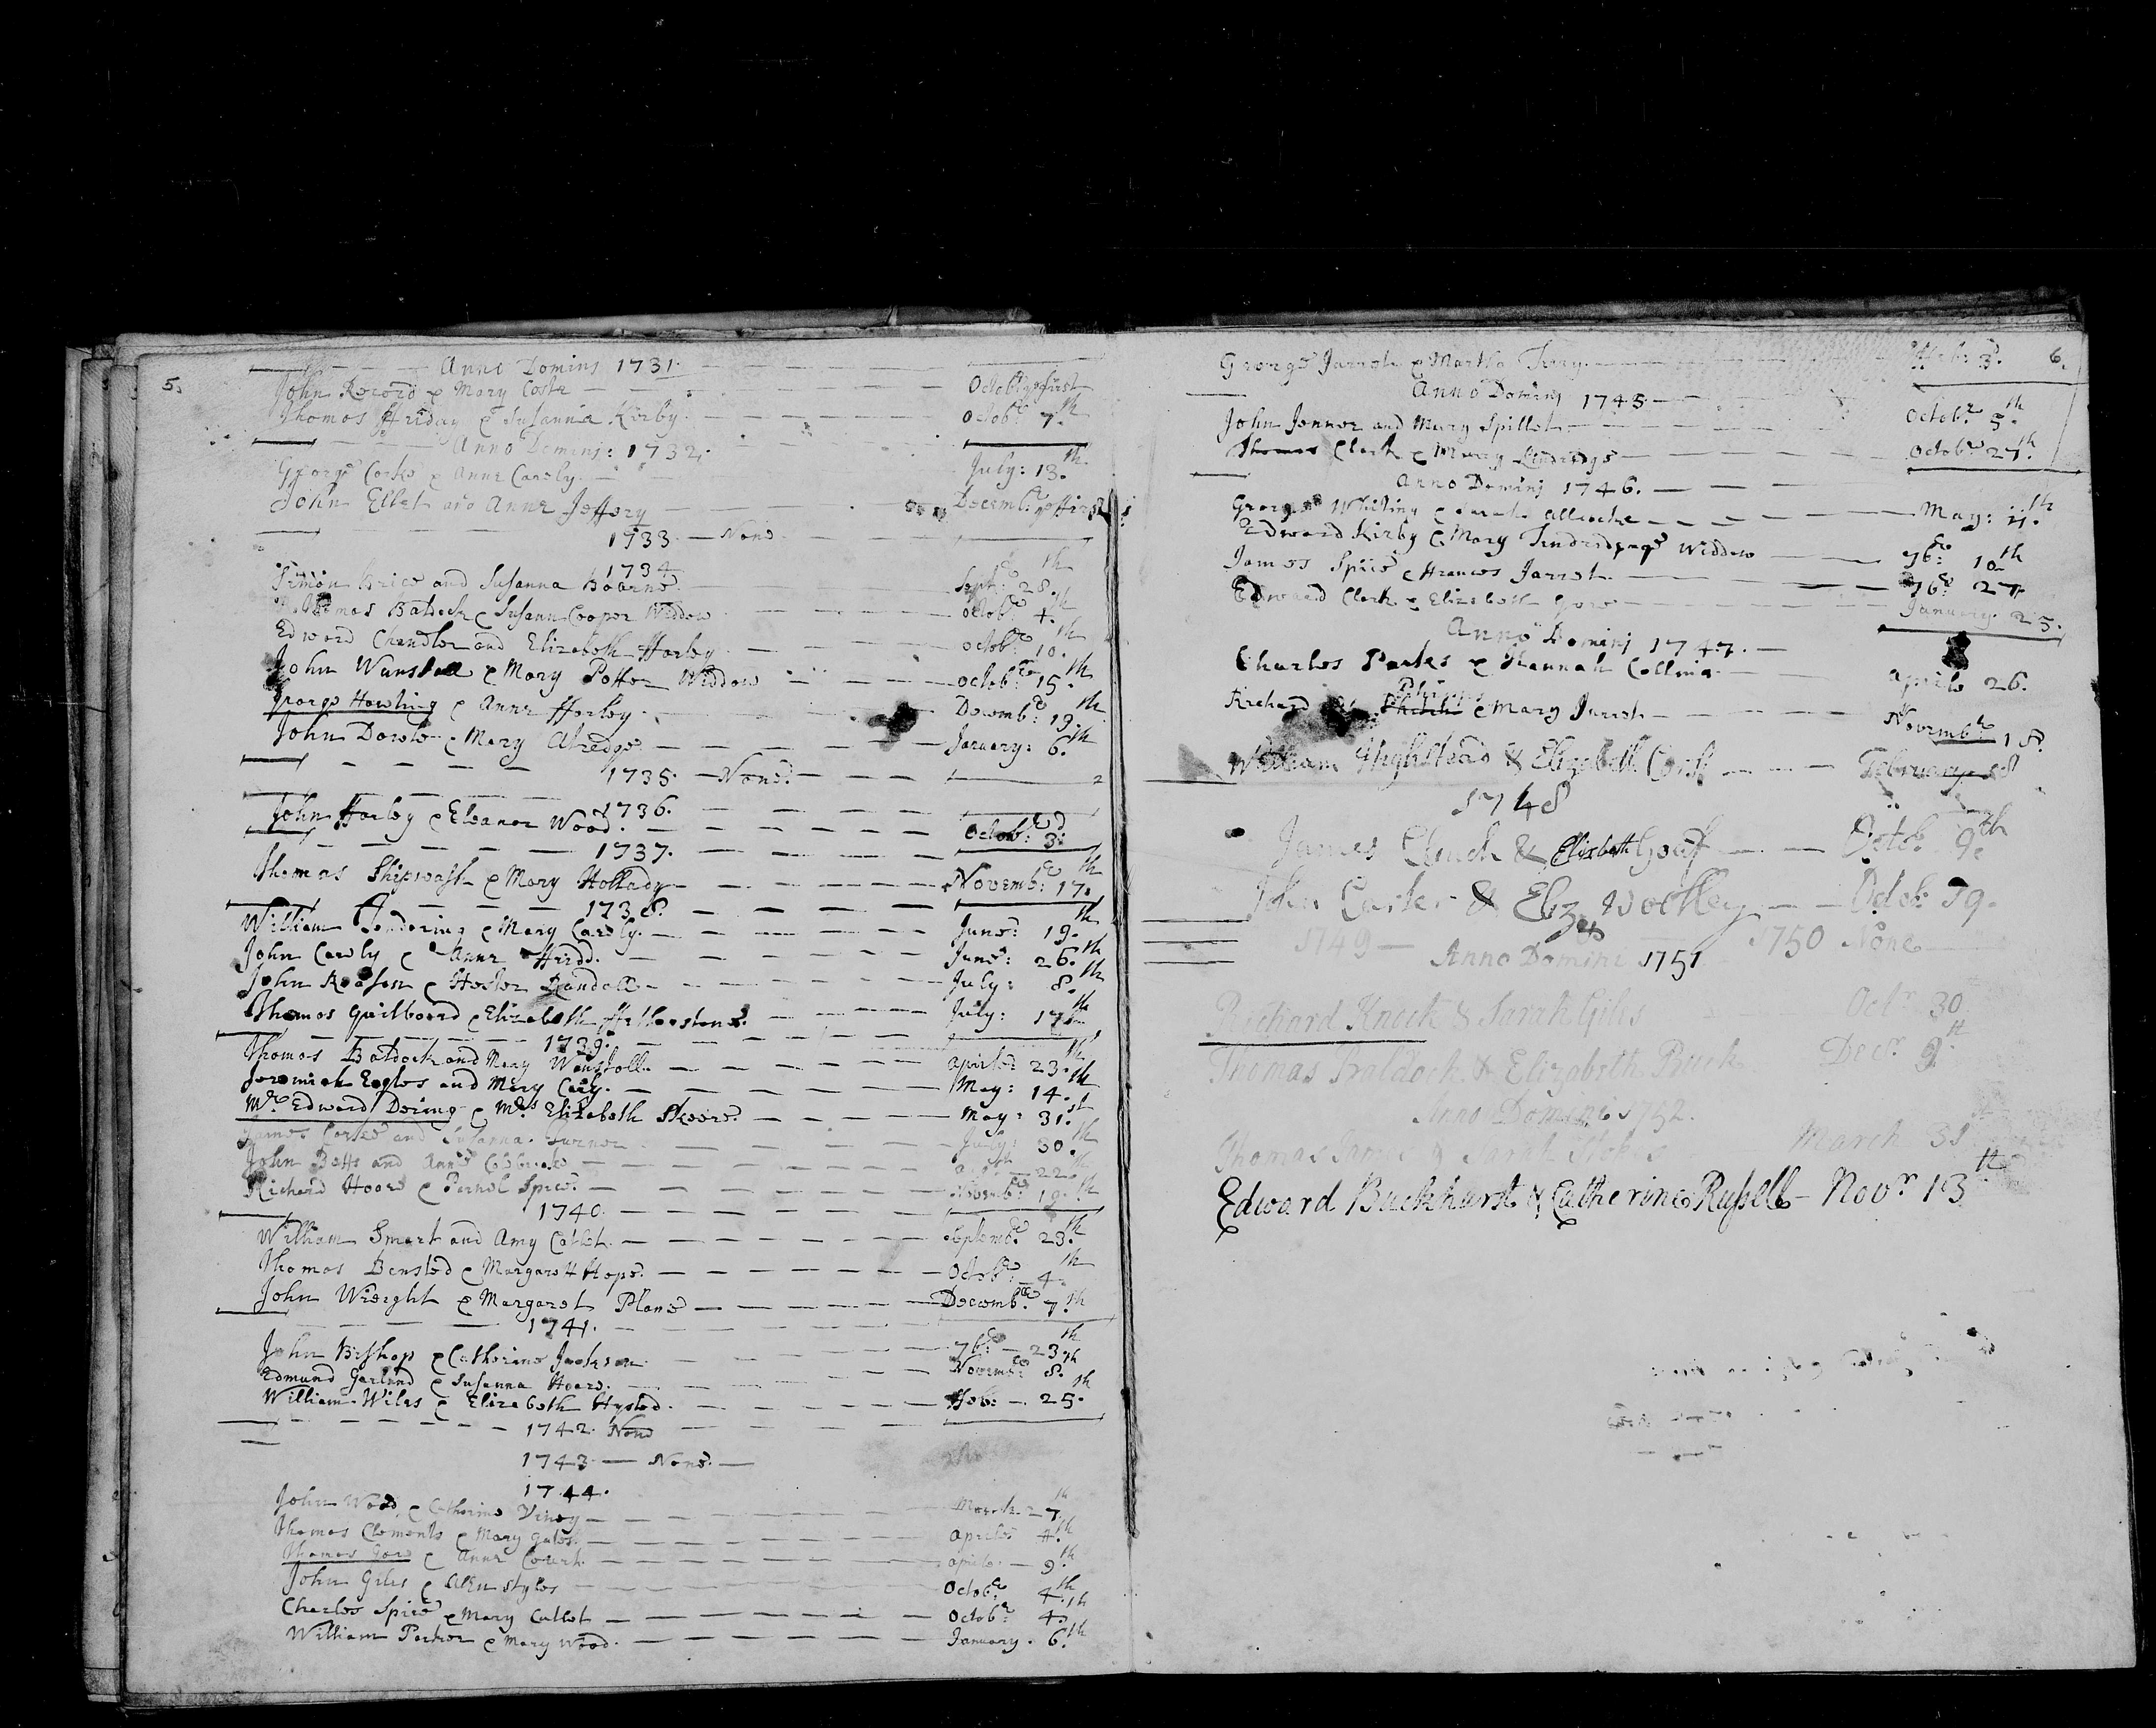 5.
Anno Domini 1731.
John Record & Mary Coste — October ye first
Thomas ffriday & Susanna Kirby. — Octobr 7th
Anno Domini: 1732.
George Corke & Anne Carsly. — July: 13th.
John Ellet and Anne Jeffery — Decembr ye ffirst
1733. — None.
1734
Simon Brice and Susanna — Septr: 28th.
Thomas Baldock & Susann Cooper Widdow — Octobr 4th.
Edward Chandler and Elizabeth Harby — Octobr 10th.
John Wanstall & Mary Potter Widdow — Octobr 15th.
George Howting & Anne Harby — Decembr: 19th.
John Dowle & Mary Alredge. — January: 6th.
1735. — None.
1736.
John Harby & Eleanor Wood. — Octobr: 3d.
1737.
Thomas Shipwash & Mary Hollady — Novembr: 17th.
1738.
William & Mary Carsly. — June: 19th.
John Carsly & Anne — June: 26th.
John & Hester Randall — July: 8th.
Thomas Guilboard & Elizabeth — July: 17th
1739.
Thomas Baldock and Mary Wanstall. — Aprile: 23th.
Jeremiah Eagles and Mary — May: 14th.
Mr Edward Dering & Mrs Elizabeth — May: 31st.
James and Susanna Turner — July: 30th.
John Betts and Anne — 22th.
Richard Hoare & Pernel Spice. — Novembr 19th.
1740.
William Smart and Amy Catlet. — Septembr 23th.
Thomas Bensted & Margarett Hope. — Octobr: 4th.
John Wreight & Margaret Plane — Decembr. 7th.
1741.
John Bishop & Catherine Jackson — 7br: — 23th.
Edmund Garland & Susanna Hoare. — Novembr: 8th.
William Wiles & Elizabeth Hysted. — ffeb: — 25th.
1742. None
1743 — None. —
1744.
John Wood & Catherine Viney — March — 7th.
Thomas Clements & Mary Gates. — Aprile: 4th.
Thomas Gore & Anne Court. — Aprile. — 9th.
John Giles & Allen Styles — Octobr 4th.
Charles Spice & Mary Catlet — Octobr 4th.
William Parker & Mary Wood. — January. 6th.
6.
George Jarrett & Martha — ffeb: 3d.
Anno Domini 1745 —
John Jenner and Mary Spillet — Octobr 5th.
Thomas Clark & Mary — Octobr 27th.
Anno Domini 1746. —
George Whiting & Sarah Allcocke — May: 11th.
Edward Kirby & Mary Widdow — 7br: 10th
James Spice & Frances Jarret. — 7br 27th
Edward Clark & Elizabeth Gore — January. 25.
Anno Domini 1747. —
Charles Parkes & Hannah Collins — Aprile 26.
Richard Philpot & Mary — Novembr 18.
William Highstead & Elizabeth — February 28
1748
James Clinch & Elizabeth — Octobr 9th.
John Carter & Eliz: Wottley — Octob: 19.
1749 — 1750 None
Anno Domini 1751
Richard Knock & Sarah Giles — Octr 30
Thomas Baldock & Elizabeth Buck — Decr. 9th
Anno Domini 1752.
Thomas & Sarah — March 31st
Edward Buckhurst & Catherine Russell — Novr 13th